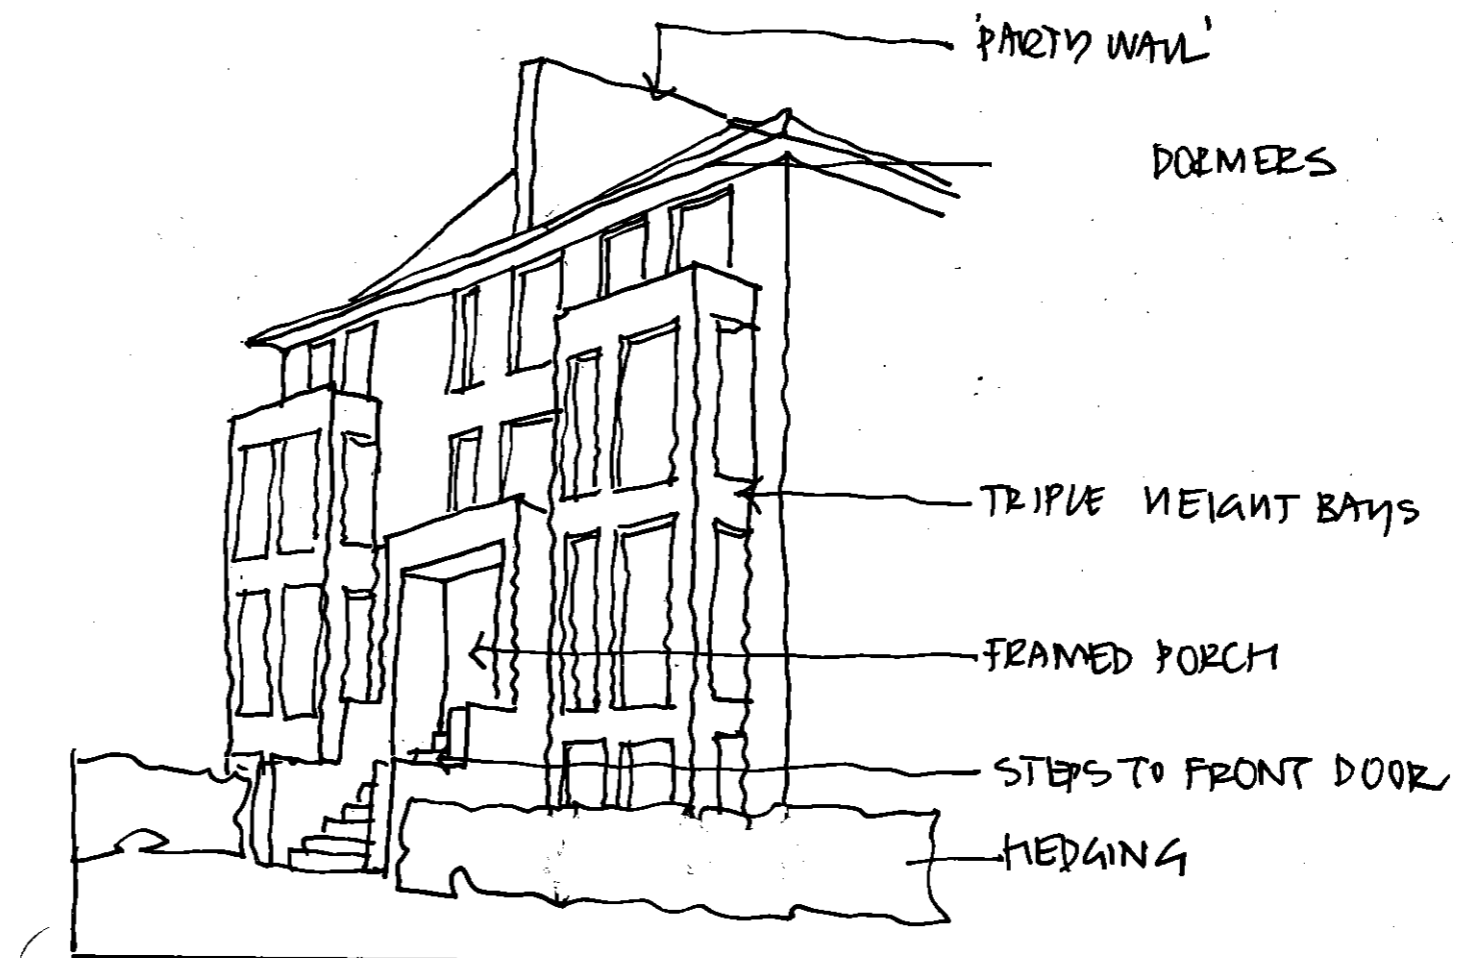 'PARTY WALL'
DORMERS
TRIPLE HEIGHT BAYS
FRAMED PORCH
STEPS TO FRONT DOOR
HEDGING